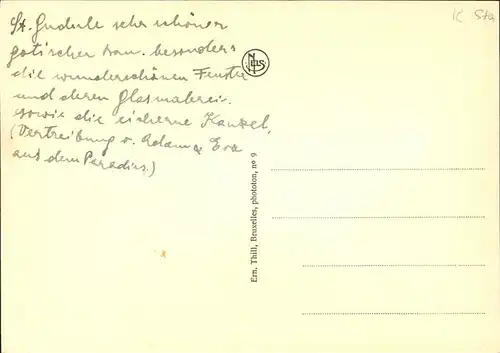 St. Gudule sehr schöner
gotischer Bau. besonders
die wunderschönen Fenster
und deren Glasmalerei.
sowie die eicherne Kanzel,
(Vertreibung v. Adam & Eva
aus dem Paradies.)
K Sta
NELS
Ern. Thill, Bruxelles, phototon, nº 9